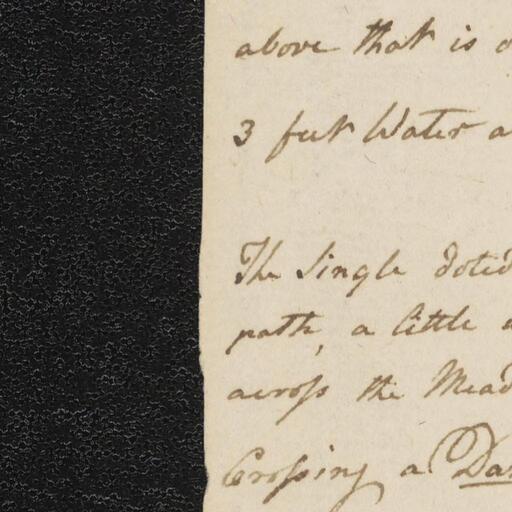 above that is
3 feet Water a
The Single doted
path, a little a
across the Mead
Crossing a Dam